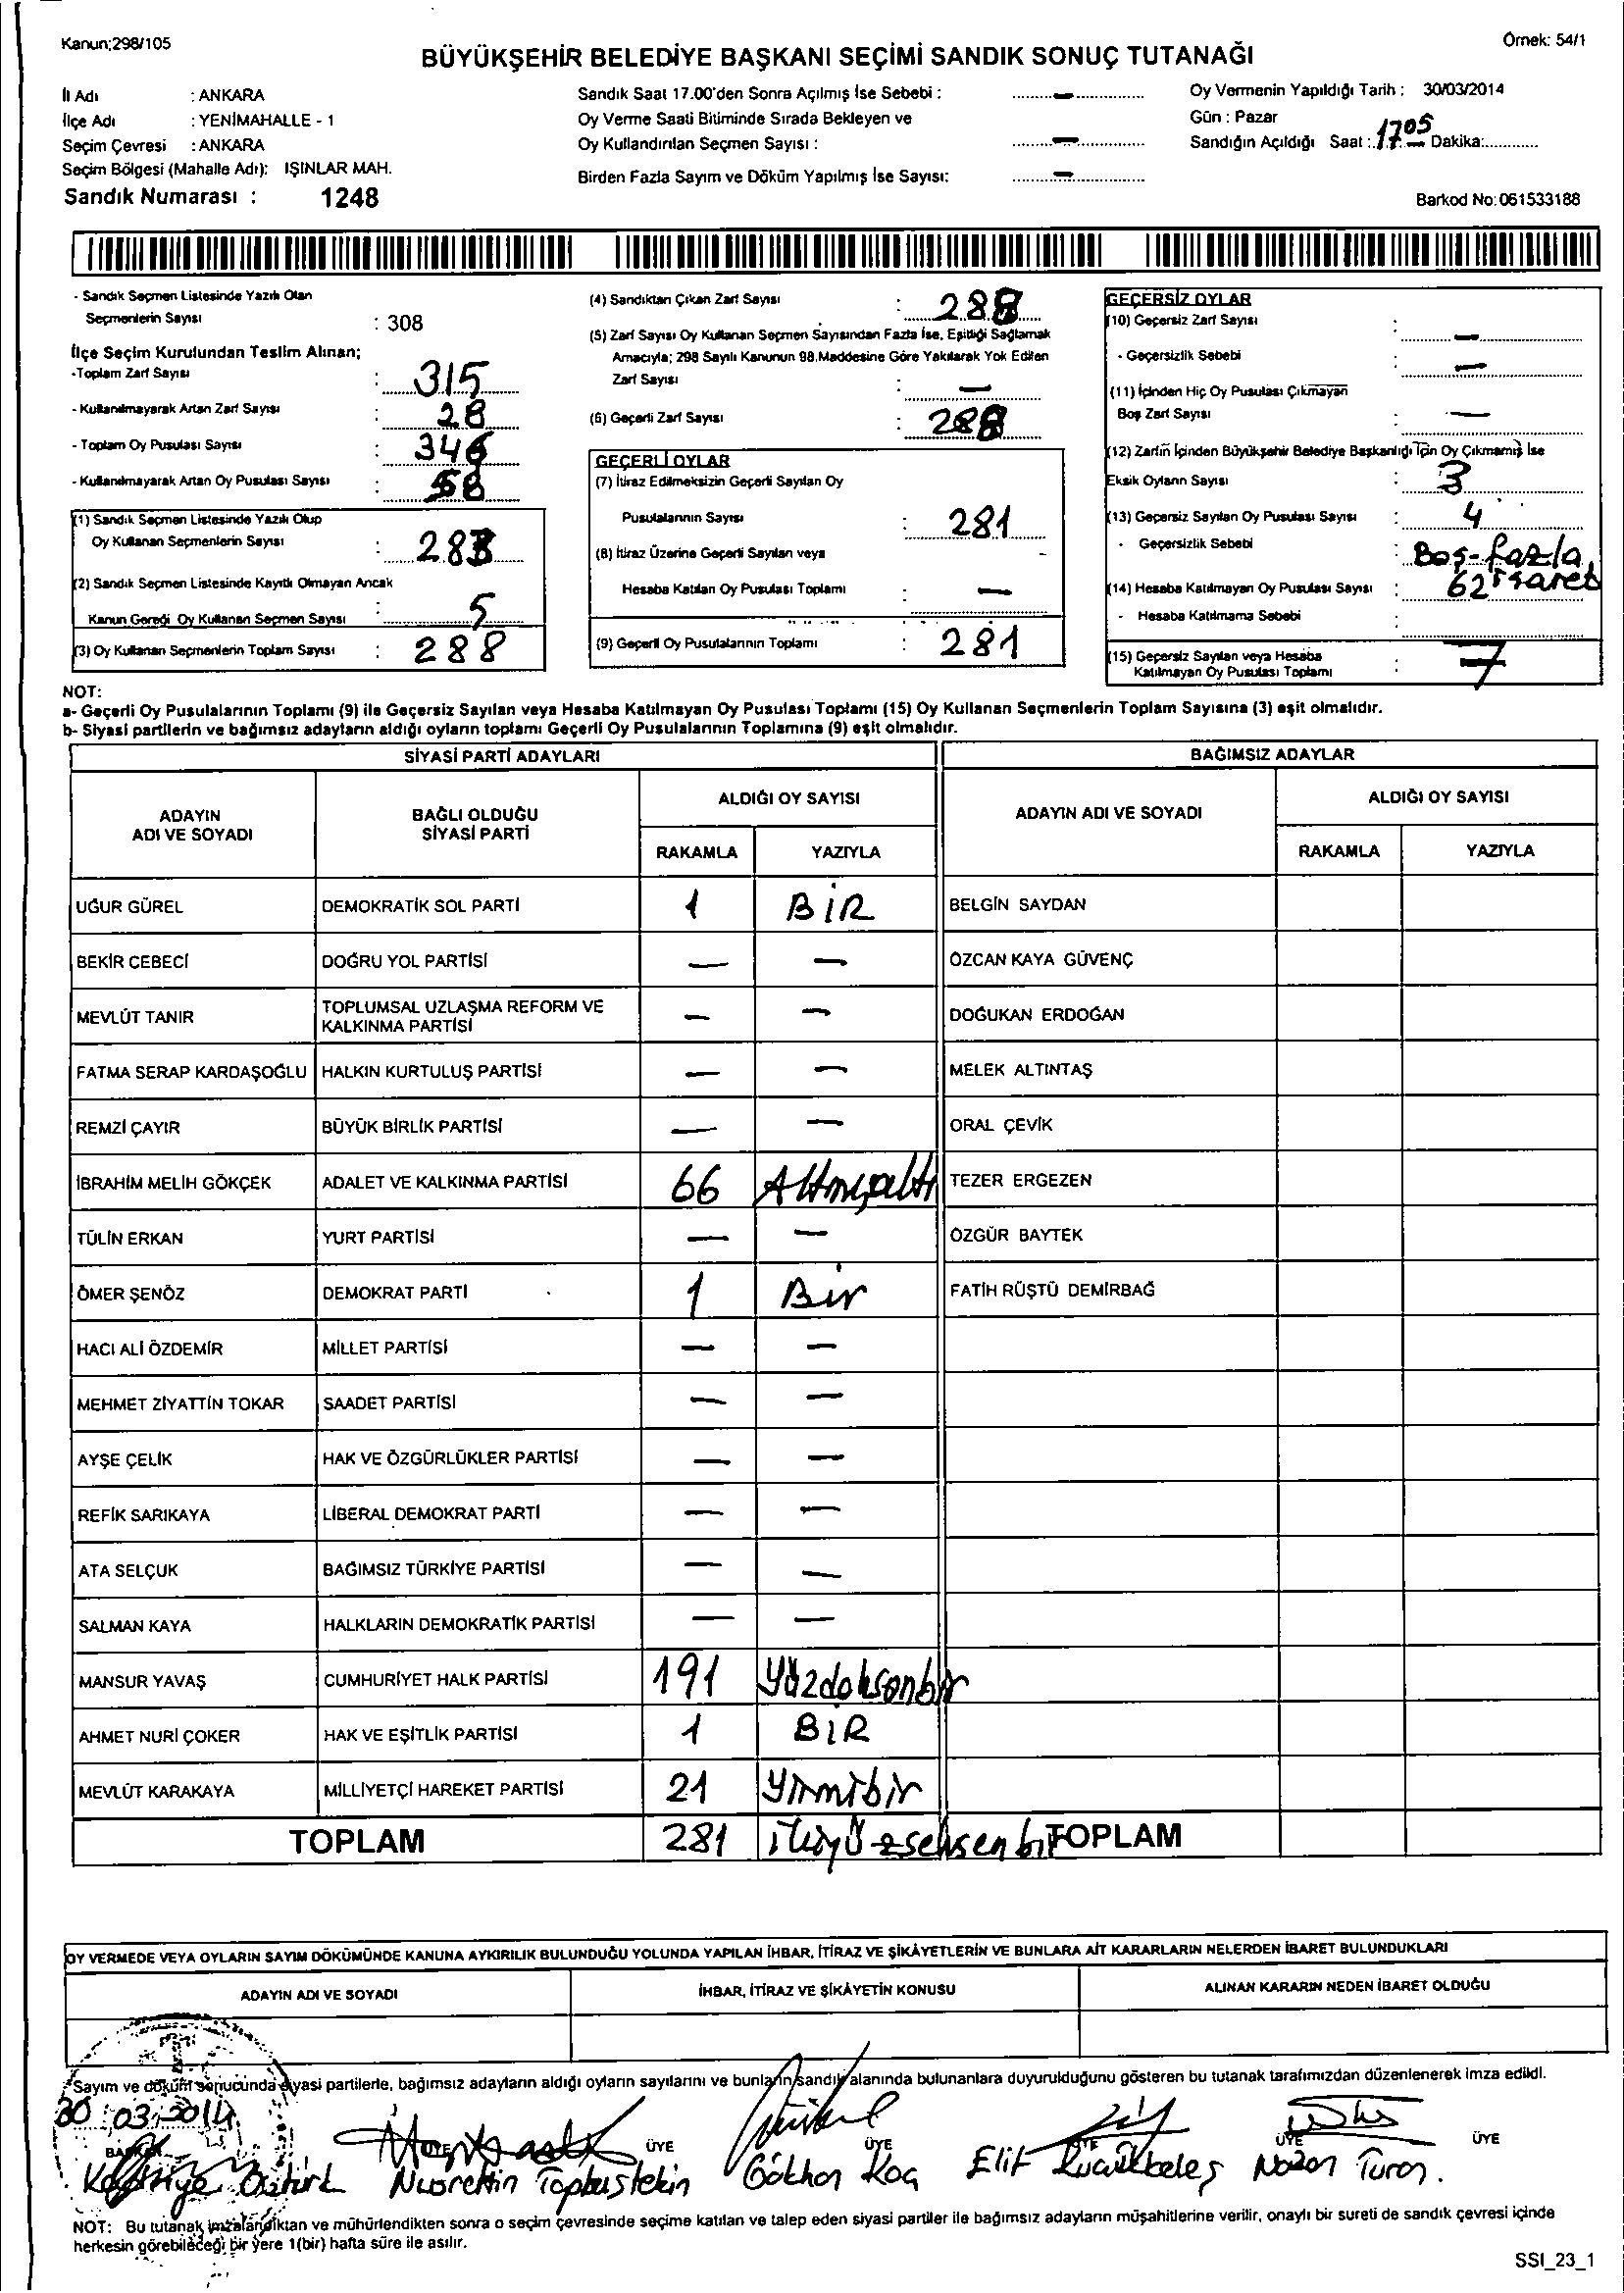 Kanun;298/105
Örnek: 54/1
BÜYÜKŞEHİR BELEDİYE BAŞKANI SEÇİMİ SANDIK SONUÇ TUTANAĞI
İl Adı : ANKARA
İlçe Adı : YENİMAHALLE - 1
Seçim Çevresi : ANKARA
Seçim Bölgesi (Mahalle Adı): IŞINLAR MAH.
Sandık Numarası : 1248
Sandık Saat 17.00'den Sonra Açılmış İse Sebebi : —
Oy Verme Saati Bitiminde Sırada Bekleyen ve
Oy Kullandırılan Seçmen Sayısı : —
Birden Fazla Sayım ve Döküm Yapılmış İse Sayısı: —
Oy Vermenin Yapıldığı Tarih : 30/03/2014
Gün : Pazar
Sandığın Açıldığı Saat : 1705 Dakika:
Barkod No:061533188
- Sandık Seçmen Listesinde Yazılı Olan
Seçmenlerin Sayısı : 308
İlçe Seçim Kurulundan Teslim Alınan;
-Toplam Zarf Sayısı : 315
- Kullanılmayarak Artan Zarf Sayısı : 28
- Toplam Oy Pusulası Sayısı : 346
- Kullanılmayarak Artan Oy Pusulası Sayısı : 58
(1) Sandık Seçmen Listesinde Yazılı Olup
Oy Kullanan Seçmenlerin Sayısı : 283
(2) Sandık Seçmen Listesinde Kayıtlı Olmayan Ancak
Kanun Gereği Oy Kullanan Seçmen Sayısı : 5
(3) Oy Kullanan Seçmenlerin Toplam Sayısı : 288
(4) Sandıktan Çıkan Zarf Sayısı : 288
(5) Zarf Sayısı Oy Kullanan Seçmen Sayısından Fazla İse, Eşitliği Sağlamak
Amacıyla; 298 Sayılı Kanunun 98.Maddesine Göre Yakılarak Yok Edilen
Zarf Sayısı : —
(6) Geçerli Zarf Sayısı : 288
GEÇERLİ OYLAR
(7) İtiraz Edilmeksizin Geçerli Sayılan Oy
Pusulalarının Sayısı : 281
(8) İtiraz Üzerine Geçerli Sayılan veya
Hesaba Katılan Oy Pusulası Toplamı : —
(9) Geçerli Oy Pusulalarının Toplamı : 281
GEÇERSİZ OYLAR
(10) Geçersiz Zarf Sayısı : —
- Geçersizlik Sebebi : —
(11) İçinden Hiç Oy Pusulası Çıkmayan
Boş Zarf Sayısı : —
(12) Zarfın İçinden Büyükşehir Belediye Başkanlığı İçin Oy Çıkmamış İse
Eksik Oyların Sayısı : 3
(13) Geçersiz Sayılan Oy Pusulası Sayısı : 4
- Geçersizlik Sebebi : Boş-fazla
(14) Hesaba Katılmayan Oy Pusulası Sayısı : işaret
- Hesaba Katılmama Sebebi :
(15) Geçersiz Sayılan veya Hesaba
Katılmayan Oy Pusulası Toplamı : 7
NOT:
a- Geçerli Oy Pusulalarının Toplamı (9) ile Geçersiz Sayılan veya Hesaba Katılmayan Oy Pusulası Toplamı (15) Oy Kullanan Seçmenlerin Toplam Sayısına (3) eşit olmalıdır.
b- Siyasi partilerin ve bağımsız adayların aldığı oyların toplamı Geçerli Oy Pusulalarının Toplamına (9) eşit olmalıdır.
SİYASİ PARTİ ADAYLARI BAĞIMSIZ ADAYLAR
ADAYIN ADI VE SOYADI BAĞLI OLDUĞU SİYASİ PARTİ ALDIĞI OY SAYISI ADAYIN ADI VE SOYADI ALDIĞI OY SAYISI
RAKAMLA YAZIYLA RAKAMLA YAZIYLA
UĞUR GÜREL DEMOKRATİK SOL PARTİ 1 BİR BELGİN SAYDAN
BEKİR CEBECİ DOĞRU YOL PARTİSİ — — ÖZCAN KAYA GÜVENÇ
MEVLÜT TANIR TOPLUMSAL UZLAŞMA REFORM VE KALKINMA PARTİSİ — — DOĞUKAN ERDOĞAN
FATMA SERAP KARDAŞOĞLU HALKIN KURTULUŞ PARTİSİ — — MELEK ALTINTAŞ
REMZİ ÇAYIR BÜYÜK BİRLİK PARTİSİ — — ORAL ÇEVİK
İBRAHİM MELİH GÖKÇEK ADALET VE KALKINMA PARTİSİ 66 Altmışaltı TEZER ERGEZEN
TÜLİN ERKAN YURT PARTİSİ — — ÖZGÜR BAYTEK
ÖMER ŞENÖZ DEMOKRAT PARTİ 1 Bir FATİH RÜŞTÜ DEMİRBAĞ
HACI ALİ ÖZDEMİR MİLLET PARTİSİ — —
MEHMET ZİYATTİN TOKAR SAADET PARTİSİ — —
AYŞE ÇELİK HAK VE ÖZGÜRLÜKLER PARTİSİ — —
REFİK SARIKAYA LİBERAL DEMOKRAT PARTİ — —
ATA SELÇUK BAĞIMSIZ TÜRKİYE PARTİSİ — —
SALMAN KAYA HALKLARIN DEMOKRATİK PARTİSİ — —
MANSUR YAVAŞ CUMHURİYET HALK PARTİSİ 191 Yüzdoksanbir
AHMET NURİ ÇOKER HAK VE EŞİTLİK PARTİSİ 1 BİR
MEVLÜT KARAKAYA MİLLİYETÇİ HAREKET PARTİSİ 21 Yirmibir
TOPLAM 281 ikiyüzseksenbir TOPLAM
OY VERMEDE VEYA OYLARIN SAYIM DÖKÜMÜNDE KANUNA AYKIRILIK BULUNDUĞU YOLUNDA YAPILAN İHBAR, İTİRAZ VE ŞİKÂYETLERİN VE BUNLARA AİT KARARLARIN NELERDEN İBARET BULUNDUKLARI
ADAYIN ADI VE SOYADI İHBAR, İTİRAZ VE ŞİKÂYETİN KONUSU ALINAN KARARIN NEDEN İBARET OLDUĞU
Sayım ve döküm sonucunda siyasi partilerle, bağımsız adayların aldığı oyların sayılarını ve bunların sandık alanında bulunanlara duyurulduğunu gösteren bu tutanak tarafımızdan düzenlenerek imza edildi.
30 03 2014
BAŞKAN ÜYE ÜYE ÜYE ÜYE ÜYE
Öztürk Nusrettin Gökhan Koç Elif Küçükbeleş Nazan Turan.
NOT: Bu tutanak imzalandıktan ve mühürlendikten sonra o seçim çevresinde seçime katılan ve talep eden siyasi partiler ile bağımsız adayların müşahitlerine verilir, onaylı bir sureti de sandık çevresi içinde
herkesin görebileceği bir yere 1(bir) hafta süre ile asılır.
SSI_23_1